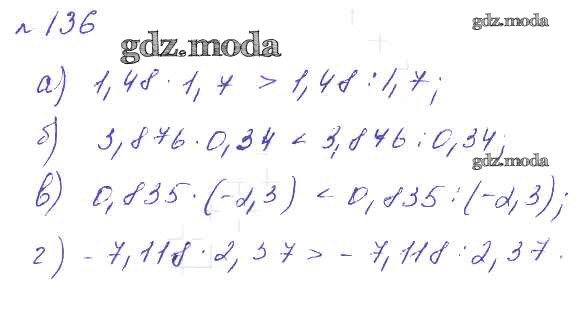 № 136
gdz.moda
gdz.moda
а) 1,48 · 1,7 > 1,48 : 1,7;
б) 3,876 · 0,34 < 3,876 : 0,34;
gdz.moda
в) 0,835 · (-2,3) < 0,835 : (-2,3);
г) - 7,118 · 2,37 > - 7,118 : 2,37.